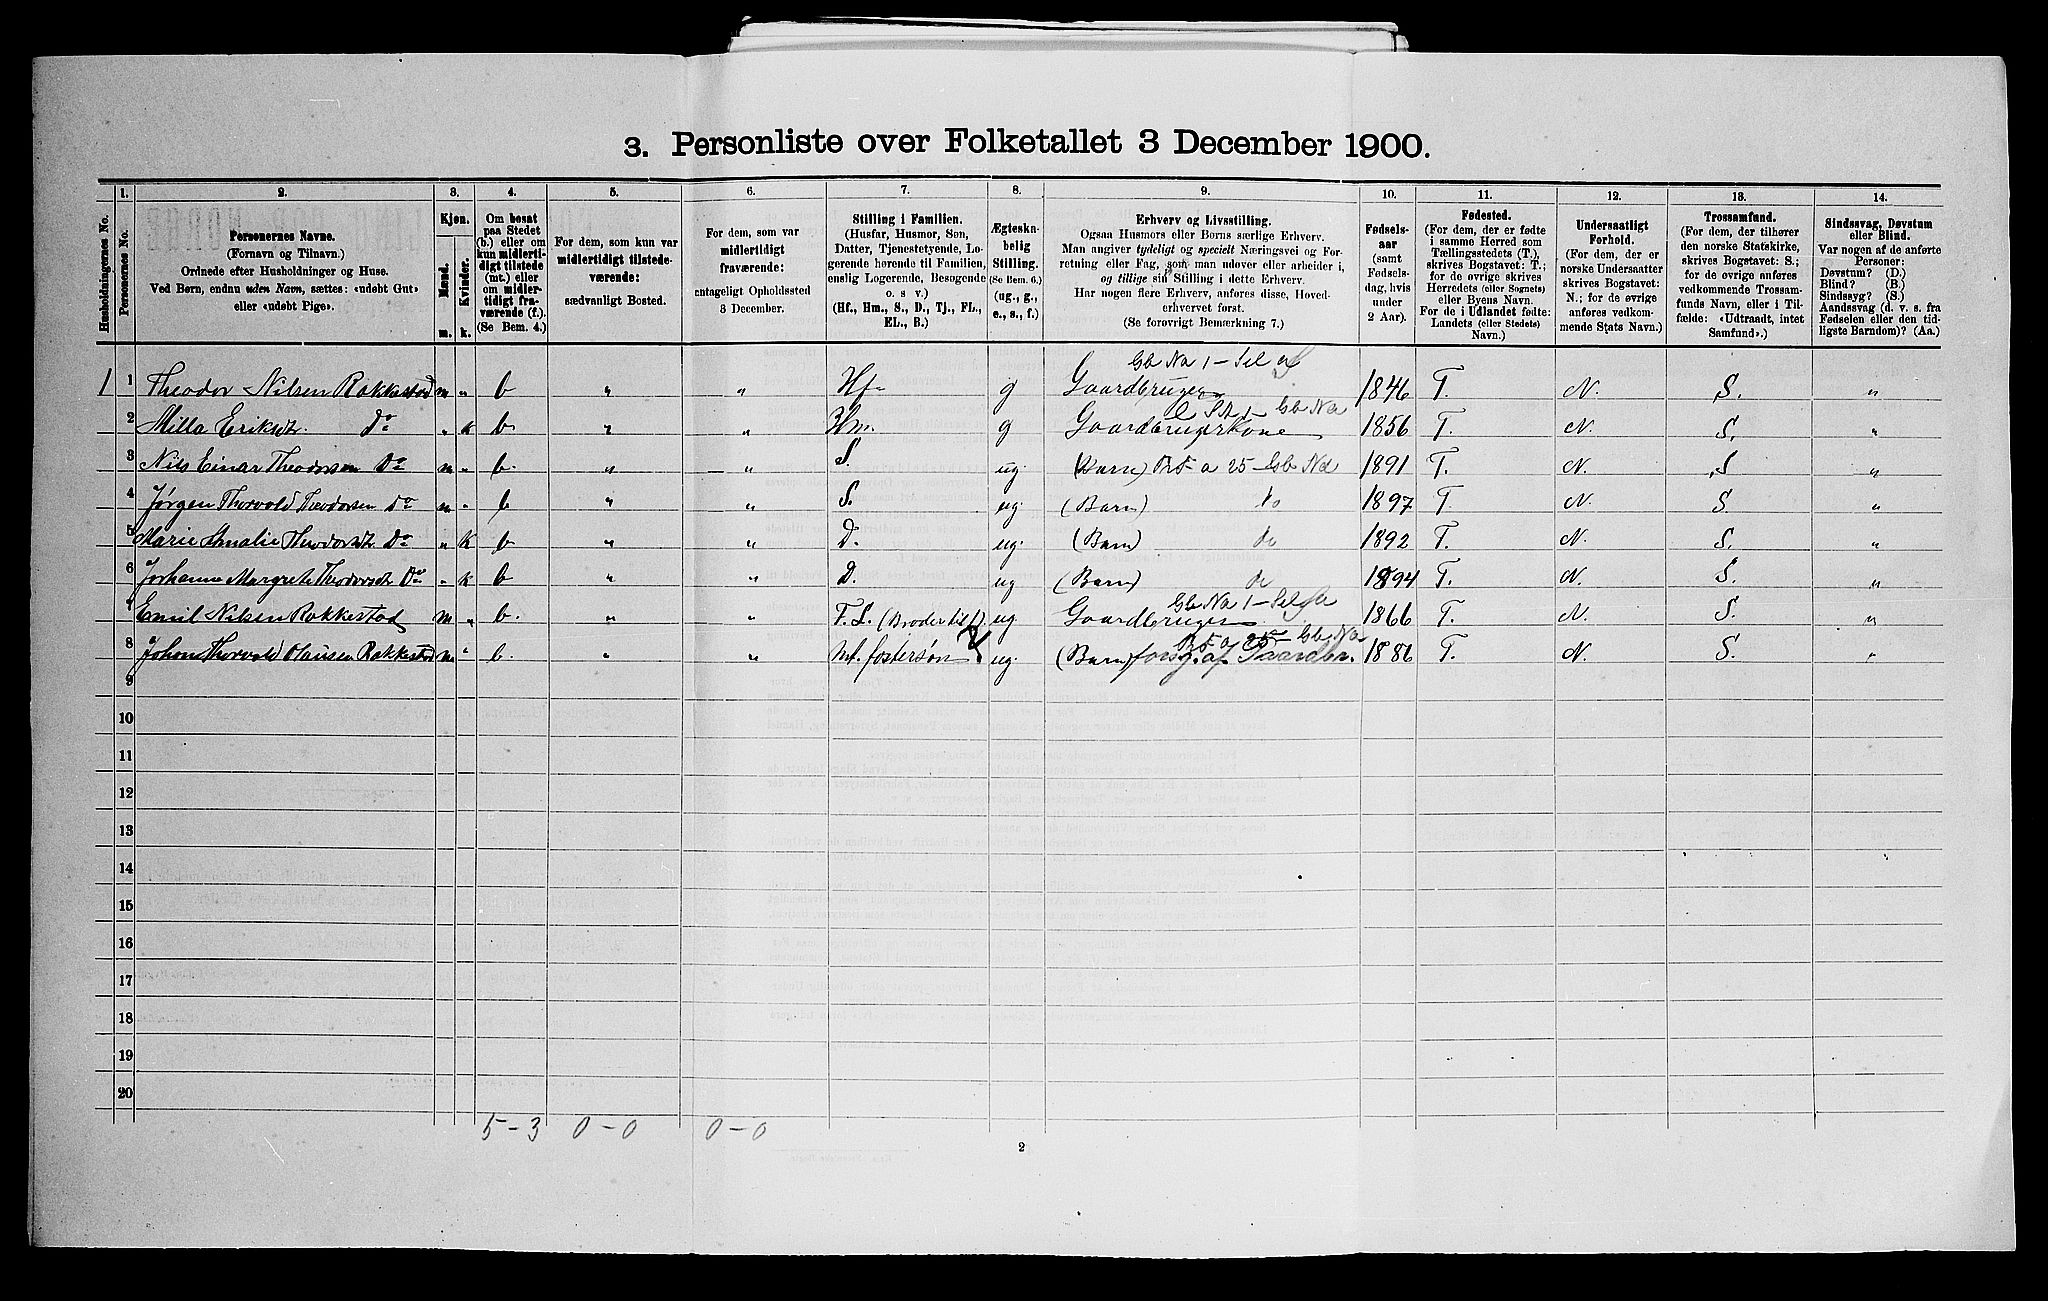 3. Personliste over Folketallet 3 December 1900.
1. 2. 3. 4. 5. 6. 7. 8. 9. 10. 11. 12. 13. 14.
Husholdningernes No.
Personernes No.
Personernes Navne.
(Fornavn og Tilnavn.)
Ordnede efter Husholdninger og Huse.
Ved Børn, endnu uden Navn, sættes: «udøbt Gut»
eller «udøbt Pige».
Kjøn.
Mænd.
Kvinder.
m. k.
Om bosat
paa Stedet
(b.) eller om
kun midlerti-
digt tilstede
(mt.) eller
om midler-
tidigt fra-
værende (f.)
(Se Bem. 4.)
For dem, som kun var
midlertidigt tilstede-
værende:
sædvanligt Bosted.
For dem, som var
midlertidigt
fraværende:
antageligt Opholdssted
3 December.
Stilling i Familien.
(Husfar, Husmor, Søn,
Datter, Tjenestetyende, Lo-
gerende hørende til Familien,
enslig Logerende, Besøgende
o. s v.)
(Hf., Hm., S., D., Tj., FL.,
EL., B.)
Ægteska-
belig
Stilling.
(Se Bem. 6.)
(ug., g.,
e., s., f.)
Erhverv og Livsstilling.
Ogsaa Husmors eller Børns særlige Erhverv.
Man angiver tydeligt og specielt Næringsvei og For-
retning eller Fag, som man udover eller arbeider i,
og tillige sin Stilling i dette Erhverv.
Har nogen flere Erhverv, anføres disse, Hoved-
erhvervet først.
(Se forøvrigt Bemærkning 7.)
Fødsels-
aar
(samt
Fødsels-
dag, hvis
under
2 Aar).
Fødested.
(For dem, der er fødte
i samme Herred som
Tællingsstedets (T.),
skrives Bogstavet: T.;
for de øvrige skrives
Herredets (eller Sognets)
eller Byens Navn.
For de i Udlandet fødte:
Landets (eller Stedets)
Navn.)
Undersaatligt
Forhold.
(For dem, der er
norske Undersaatter
skrives Bogstavet:
N.; for de øvrige
anføres vedkom-
mende Stats Navn.)
Trossamfund.
(For dem, der tilhører
den norske Statskirke,
skrives Bogstavet: S.;
for de øvrige anføres
vedkommende Trossam-
funds Navn, eller i Til-
fælde: «Udtraadt, intet
Samfund».)
Sindssvag, Døvstum
eller Blind.
Var nogen af de anførte
Personer:
Døvstum? (D.)
Blind? (B.)
Sindssyg? (S.)
Aandssvag (d. v. s. fra
Fødselen eller den tid-
ligste Barndom)? (Aa.)
Gb Na 1 – Sel
1 1 Theodor Nilsen Rakkestad m „ b „ „ Hf g Gaardbruger 1846 T. N. S. „
Gb Na
2 Milla Eriksdtr. Do „ k b „ „ Hm. g Gaardbrugerkone 1856 T. N. S. „
3 Nils Einar Theodorsen Do m „ b. „ „ S. ug. (Barn) a 25 – Gb Na 1891 T. N. S „
4 Jørgen Thorvold Theodorsen Do m „ b „ „ S. ug. (Barn) do 1897 T. N. S. „
5 Marie Amalie Theodorsdtr Do „ k b „ „ D. ug. (Barn) do 1892 T. N. S. „
6 Johanne Margrete Theodorsdtr Do „ k b „ „ D. ug (Barn) do 1894 T. N. S. „
Gb Na 1 –
7 Emil Nilsen Rakkestad m „ b. „ „ F. L. (Broder til f) ug Gaardbruger 1866 T. N. S. „
Gb Na
8 Johan Thorvold Olausen Rakkestad m „ b. „ „ fostersøn ug. (Barn) forsg. af Gaardbr. 1886 T. N. S. „
9
10
11
12
13
14
15
16
17
18
19
20
5 – 3 0 – 0 0 – 0
2